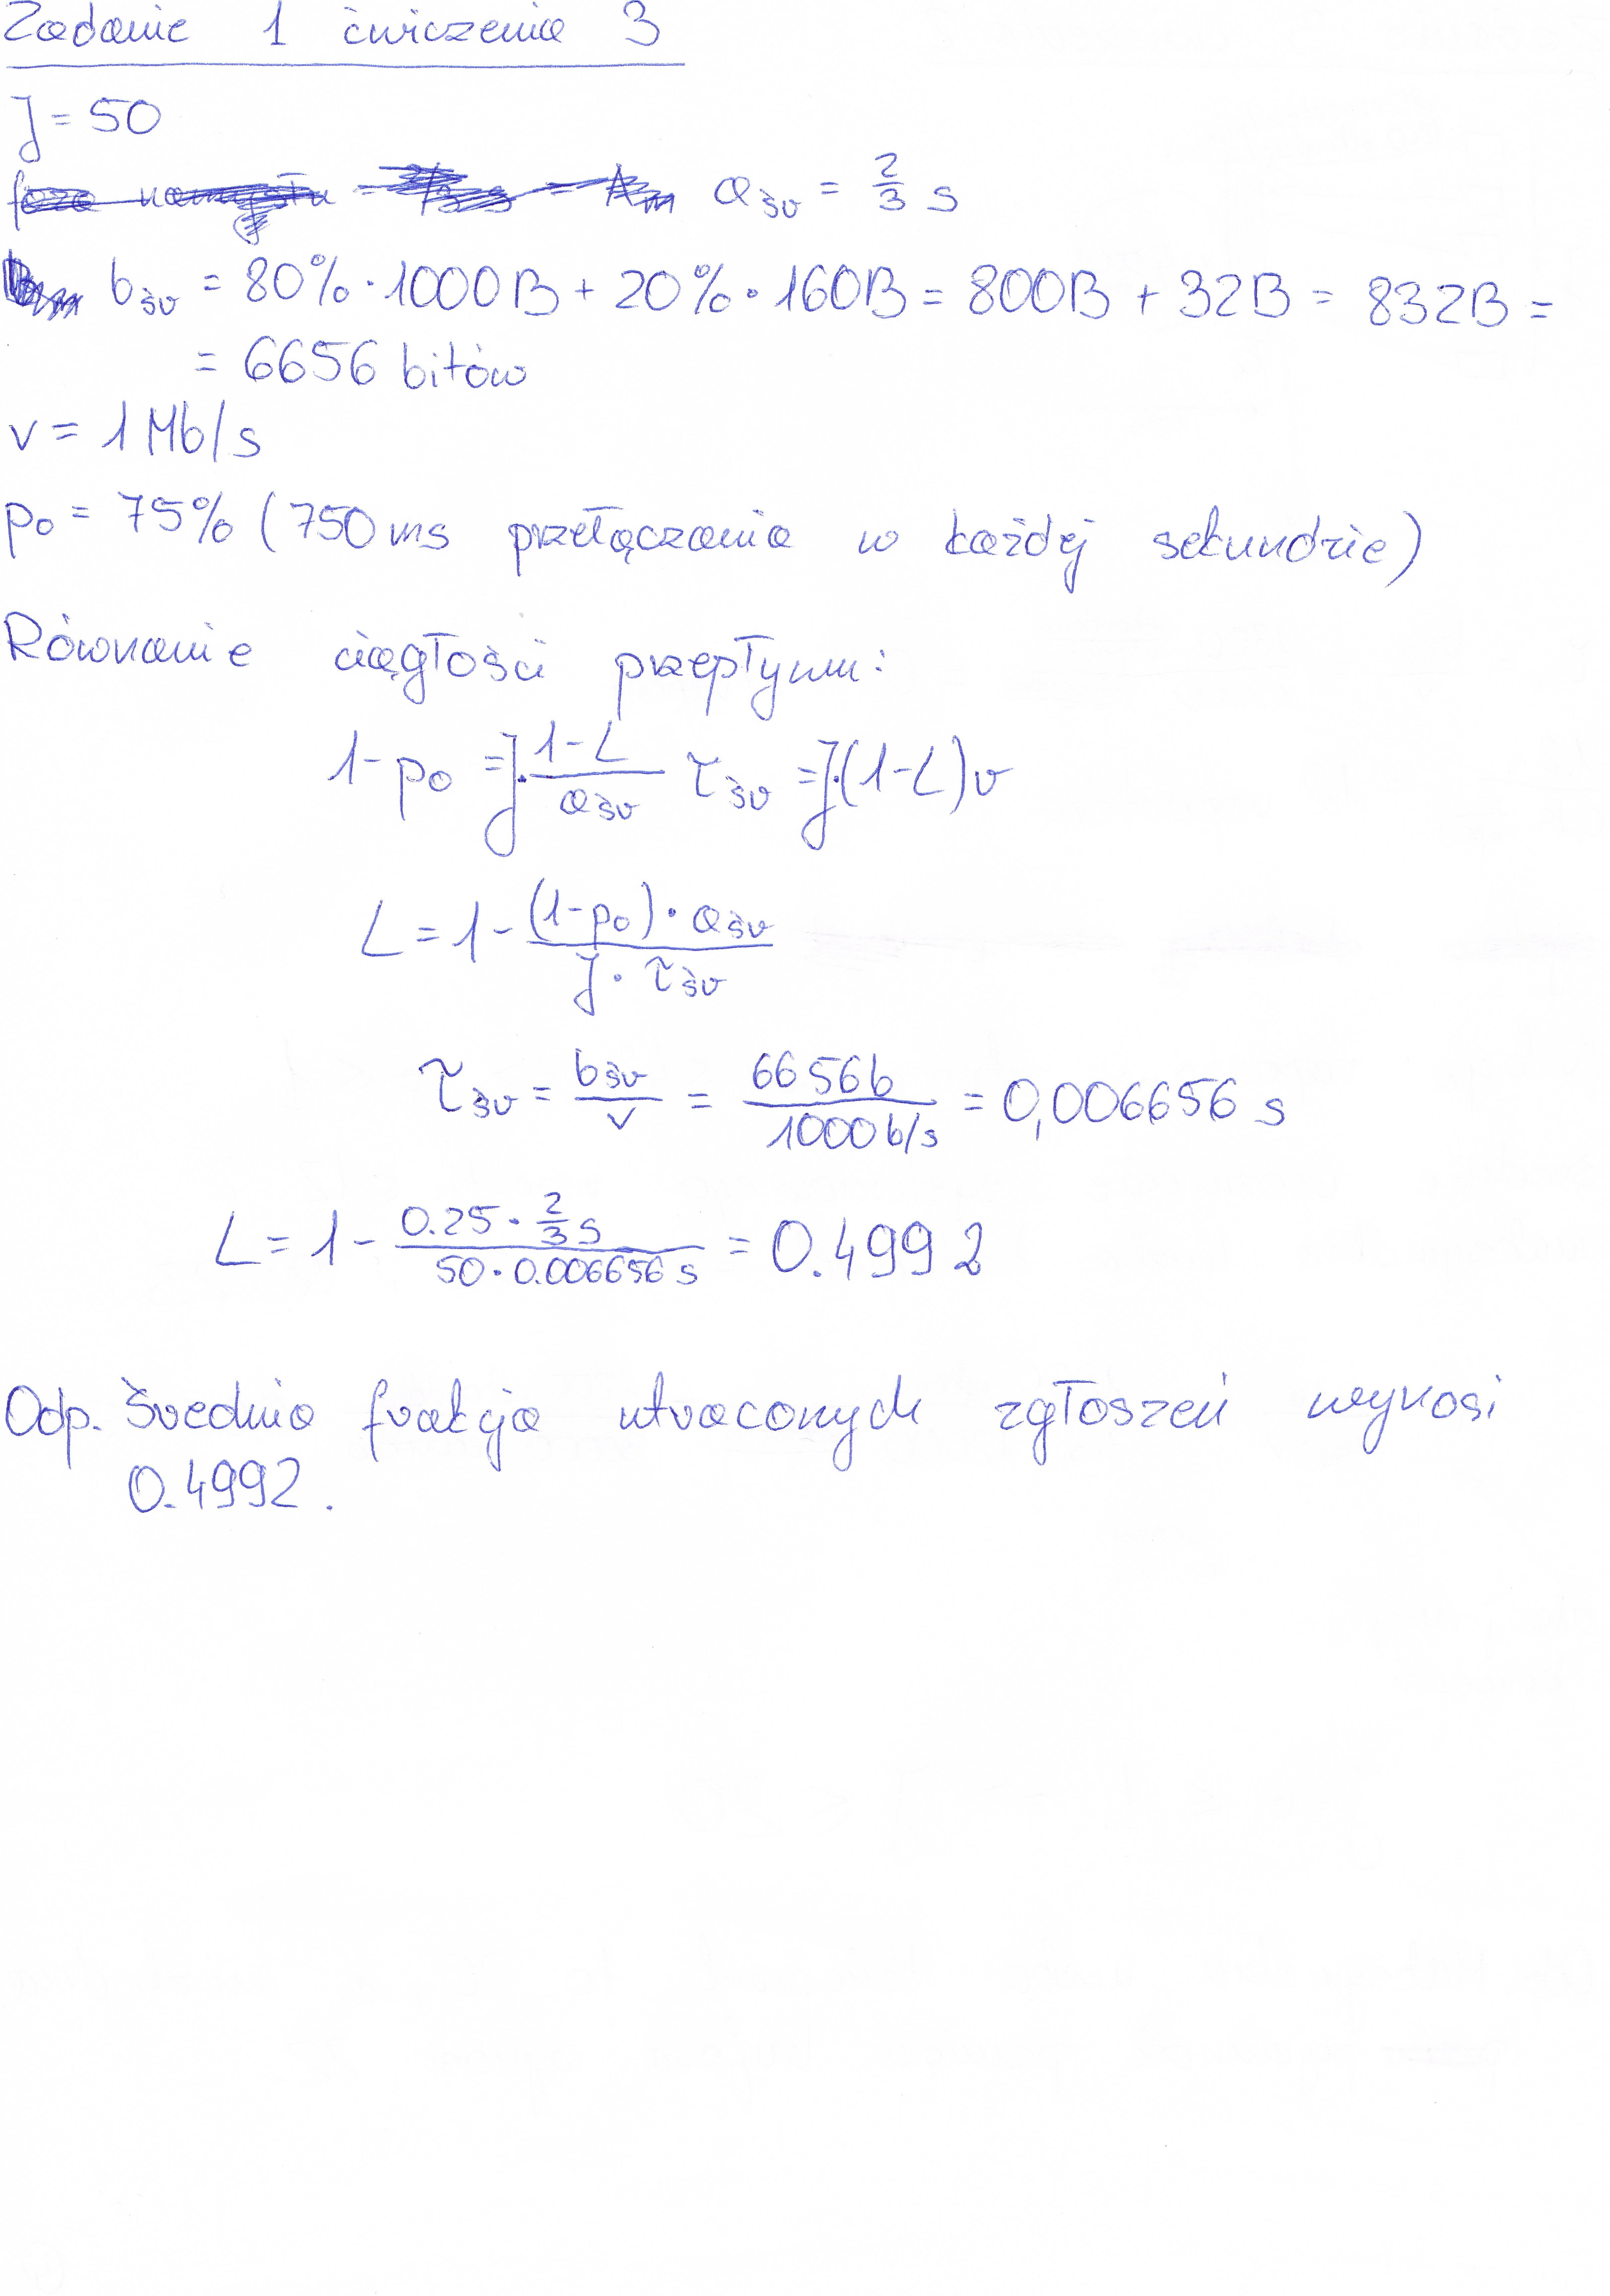 Zadanie 1 ćwiczenia 3
J = 50
a_śr = 2/3 s
b_śr = 80% · 1000B + 20% · 160B = 800B + 32B = 832B =
= 6656 bitów
v = 1 Mb/s
p_0 = 75% (750 ms przełączania w każdej sekundzie)
Równanie ciągłości przepływu:
1 - p_0 = J · (1-L)/a_śr τ_śr = J · (1-L)v
L = 1 - ((1-p_0) · a_śr)/(J · τ_śr)
τ_śr = b_śr/v = 6656b/1000b/s = 0,006656 s
L = 1 - (0.25 · 2/3 s)/(50 · 0.006656 s) = 0.4992
Odp. Średnia frakcja utraconych zgłoszeń wynosi
0.4992.